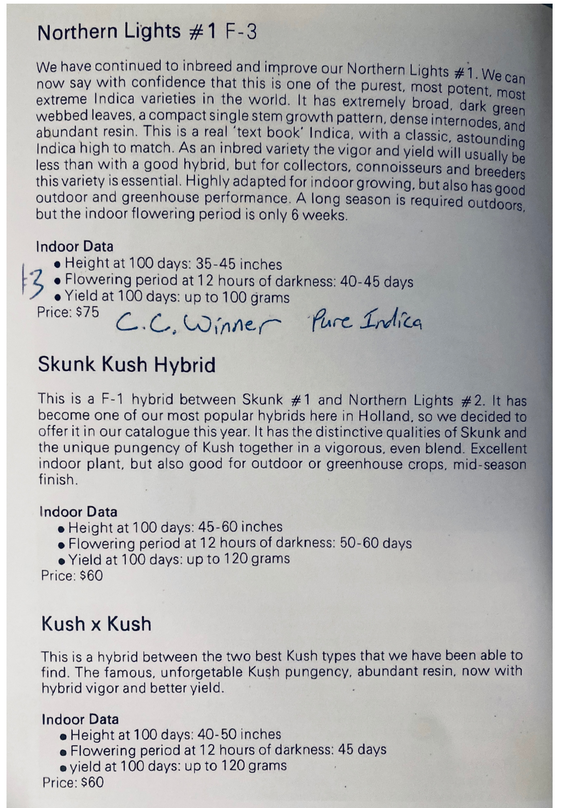 Northern Lights #1 F-3
We have continued to inbreed and improve our Northern Lights #1. We can
now say with confidence that this is one of the purest, most potent, most
extreme Indica varieties in the world. It has extremely broad, dark green
webbed leaves, a compact single stem growth pattern, dense internodes, and
abundant resin. This is a real 'text book' Indica, with a classic, astounding
Indica high to match. As an inbred variety the vigor and yield will usually be
less than with a good hybrid, but for collectors, connoisseurs and breeders
this variety is essential. Highly adapted for indoor growing, but also has good
outdoor and greenhouse performance. A long season is required outdoors,
but the indoor flowering period is only 6 weeks.
Indoor Data
• Height at 100 days: 35-45 inches
• Flowering period at 12 hours of darkness: 40-45 days
• Yield at 100 days: up to 100 grams
Price: $75
C.C. Winner Pure Indica
Skunk Kush Hybrid
This is a F-1 hybrid between Skunk #1 and Northern Lights #2. It has
become one of our most popular hybrids here in Holland, so we decided to
offer it in our catalogue this year. It has the distinctive qualities of Skunk and
the unique pungency of Kush together in a vigorous, even blend. Excellent
indoor plant, but also good for outdoor or greenhouse crops, mid-season
finish.
Indoor Data
• Height at 100 days: 45-60 inches
• Flowering period at 12 hours of darkness: 50-60 days
• Yield at 100 days: up to 120 grams
Price: $60
Kush x Kush
This is a hybrid between the two best Kush types that we have been able to
find. The famous, unforgetable Kush pungency, abundant resin, now with
hybrid vigor and better yield.
Indoor Data
• Height at 100 days: 40-50 inches
• Flowering period at 12 hours of darkness: 45 days
• yield at 100 days: up to 120 grams
Price: $60